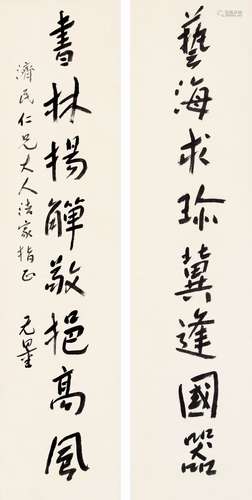 藝海求珍冀逢國器
書林揚觶敬挹高風
濟民仁兄大人法家指正